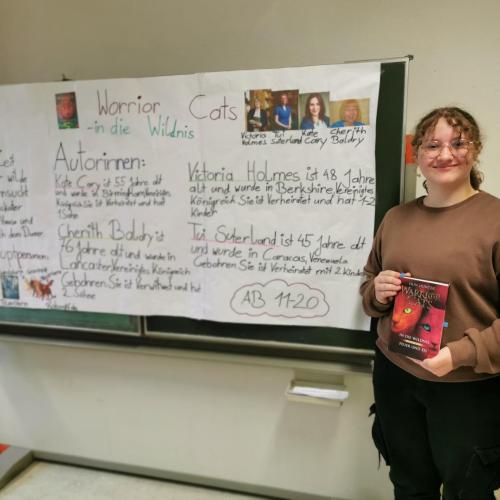 Worrior Cats
-in die Wildnis
Victoria Holmes
Tui Suterland
Kate Cary
Cherith Baldry
Autorinnen:
Kate Cary ist 55 Jahre alt
und wurde in
Königreich Sie ist Verheiratet und hat
1 Sohn
Cherith Baldry ist
76 Jahre alt und wurde in
Lancaster, Vereinigtes Königreich
Gebohren Sie ist Verwithwed und hat
2 Söhne
Victoria Holmes ist 48 Jahre
alt und wurde in Berkshire, Vereinigtes
Königreich Sie ist Verheiratet und hat 1-2
Kinder
Tui Suterland ist 45 Jahre alt
und wurde in Caracas, Venezuela
Gebohren Sie ist Verheiratet mit 2 Kinder
AB 11-20
ERIN HUNTER
WARRIOR
CATS
IN DIE WILDNIS
FEUER UND EIS